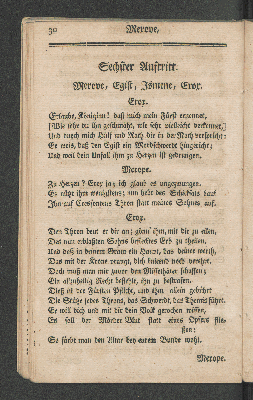 30 Merope,
Sechster Auftritt.
Merope, Egist, Ismene, Erox.
Erox.
Erlaube, Königinn! daß mich mein Fürst ernennet,
(Wie sehr du ihn geschmäht, wie sehr vielleicht verkennet,)
Und durch mich Hülf und Rath dir in der Noth versichert;
Er weis, daß den Egist ein Mordschwerdt hingericht;
Und weil dein Unfall ihm zu Herzen ist gedrungen.
Merope.
Zu Herzen? Erox ja; ich glaub es ungezwungen.
Es rührt ihn wenigstens; um hebt das Schicksal
Ihn auf Cresphontens Thron statt meines Sohnes auf.
Erox.
Den Thron beut er dir an; glaub ihm, mit dir zu allen,
Das nun erblaßten Sohns
Und deß in deinem Gram ein Haupt, das deines werth,
Das mit der Krone prangt, dich knieend noch verehrt.
Doch muß man mir zuvor den Missethäter schaffen;
Ein allzuheilig Recht befiehlt, ihn zu bestrafen.
Dieß ist der Fürsten Pflicht, und ihm allein gebührt
Die Stütze jedes Throns, das Schwerdt, das Themis führt.
Er will dich und mit dir dein Volk gerochen wissen,
Es soll der Mörder Blut statt eines Opfers flie-
ßen:
So färbt man den Altar bey eurem Bunde wohl.
Merope.